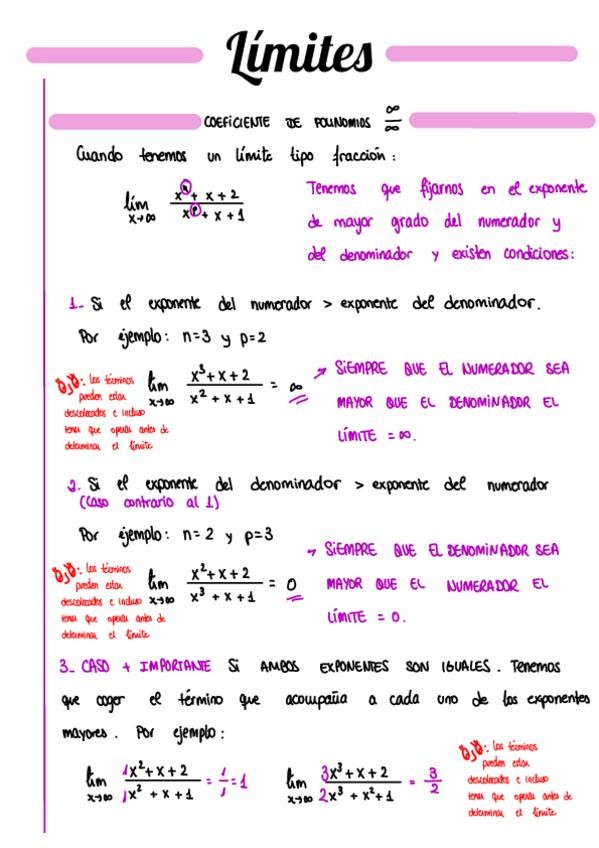 Límites
COEFICIENTE DE POLINOMIOS ∞/∞
Cuando tenemos un límite tipo fracción:
lim x→∞ (xⁿ + x + 2)/(xᵖ + x + 1)
Tenemos que fijarnos en el exponente
de mayor grado del numerador y
del denominador y existen condiciones:
1- Si el exponente del numerador > exponente del denominador.
Por ejemplo: n=3 y p=2
Los términos
pueden estar
descolocados e incluso
tener que operar antes de
determinar el límite
lim x→∞ (x³ + x + 2)/(x² + x + 1) = ∞
→ SIEMPRE QUE EL NUMERADOR SEA
MAYOR QUE EL DENOMINADOR EL
LÍMITE = ∞.
2. Si el exponente del denominador > exponente del numerador
(Caso contrario al 1)
Por ejemplo: n=2 y p=3
Los términos
pueden estar
descolocados e incluso
tener que operar antes de
determinar el límite
lim x→∞ (x² + x + 2)/(x³ + x + 1) = 0
→ SIEMPRE QUE EL DENOMINADOR SEA
MAYOR QUE EL NUMERADOR EL
LÍMITE = 0.
3- CASO + IMPORTANTE Si AMBOS EXPONENTES SON IGUALES. Tenemos
que coger el término que acompaña a cada uno de los exponentes
mayores. Por ejemplo:
lim x→∞ (1x² + x + 2)/(1x² + x + 1) = 1/1 = 1
lim x→∞ (3x³ + x + 2)/(2x³ + x² + 1) = 3/2
Los términos
pueden estar
descolocados e incluso
tener que operar antes de
determinar el límite